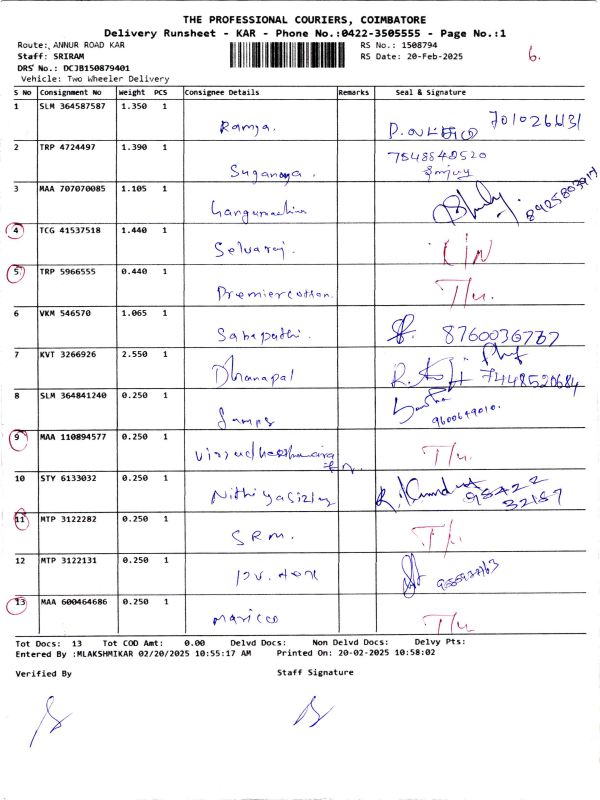 THE PROFESSIONAL COURIERS, COIMBATORE
Delivery Runsheet - KAR - Phone No.:0422-3505555 - Page No.:1
Route: ANNUR ROAD KAR
RS No.: 1508794
6.
Staff: SRIRAM
RS Date: 20-Feb-2025
DRS No.: DCJB150879401
Vehicle: Two Wheeler Delivery
S No Consignment No Weight PCS Consignee Details Remarks Seal & Signature
1 SLM 364587587 1.350 1
Ramya.
2 TRP 4724497 1.390 1
7548848520
Suganaya.
3 MAA 707070085 1.105 1
8925803917
4 TCG 41537518 1.440 1
Selvaraj.
5 TRP 5966555 0.440 1
Premiercotton. T/u.
6 VKM 546570 1.065 1
Sabapathi. 8760036767
7 KVT 3266926 2.550 1
Dhanapal 7448520684
8 SLM 364841240 0.250 1
9600649010.
9 MAA 110894577 0.250 1
T/u.
10 STY 6133032 0.250 1
98422
32187
11 MTP 3122282 0.250 1
S R M. T/u.
12 MTP 3122131 0.250 1
13 MAA 600464686 0.250 1
Maricco T/u
Tot Docs: 13 Tot COD Amt: 0.00 Delvd Docs: Non Delvd Docs: Delvy Pts:
Entered By :MLAKSHMIKAR 02/20/2025 10:55:17 AM Printed On: 20-02-2025 10:58:02
Verified By Staff Signature